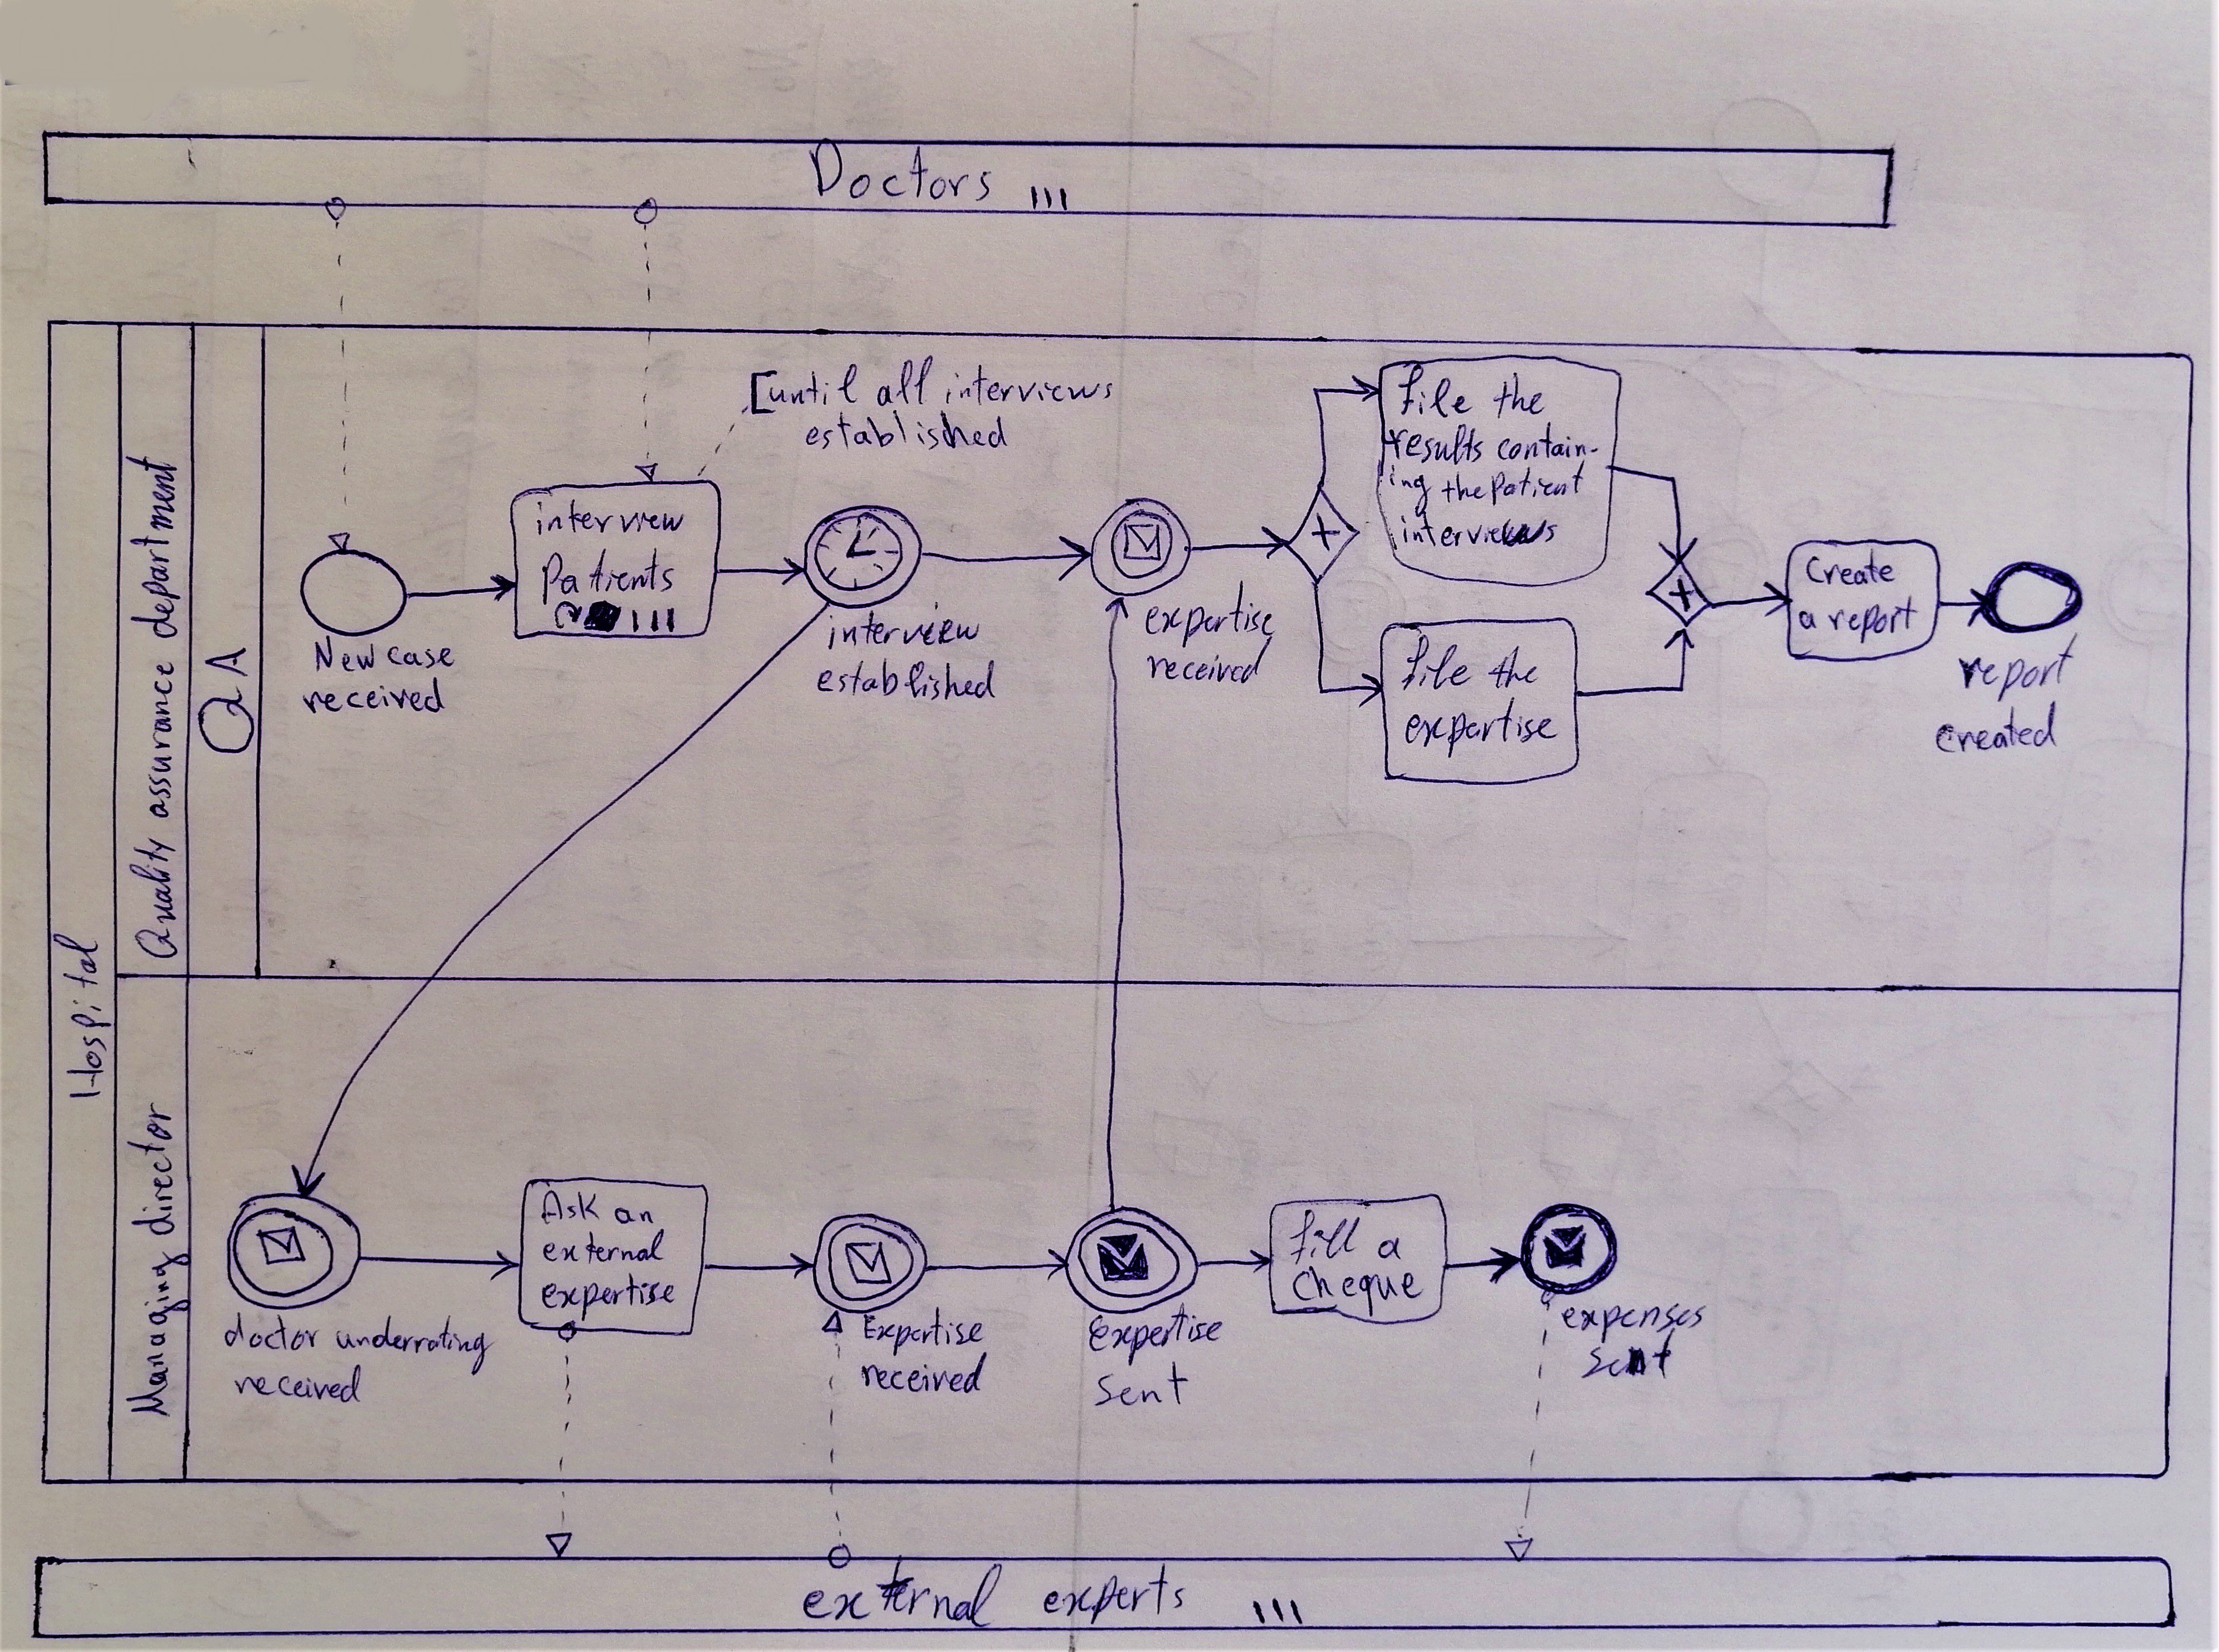 Doctors
Hospital
Quality assurance department
QA
[until all interviews
established
New case
received
interview
Patients
interview
established
expertise
received
file the
results contain-
ing the patient
interviews
file the
expertise
Create
a report
report
created
Managing director
doctor underrating
received
Ask an
external
expertise
Expertise
received
Expertise
sent
fill a
cheque
expenses
sent
external experts